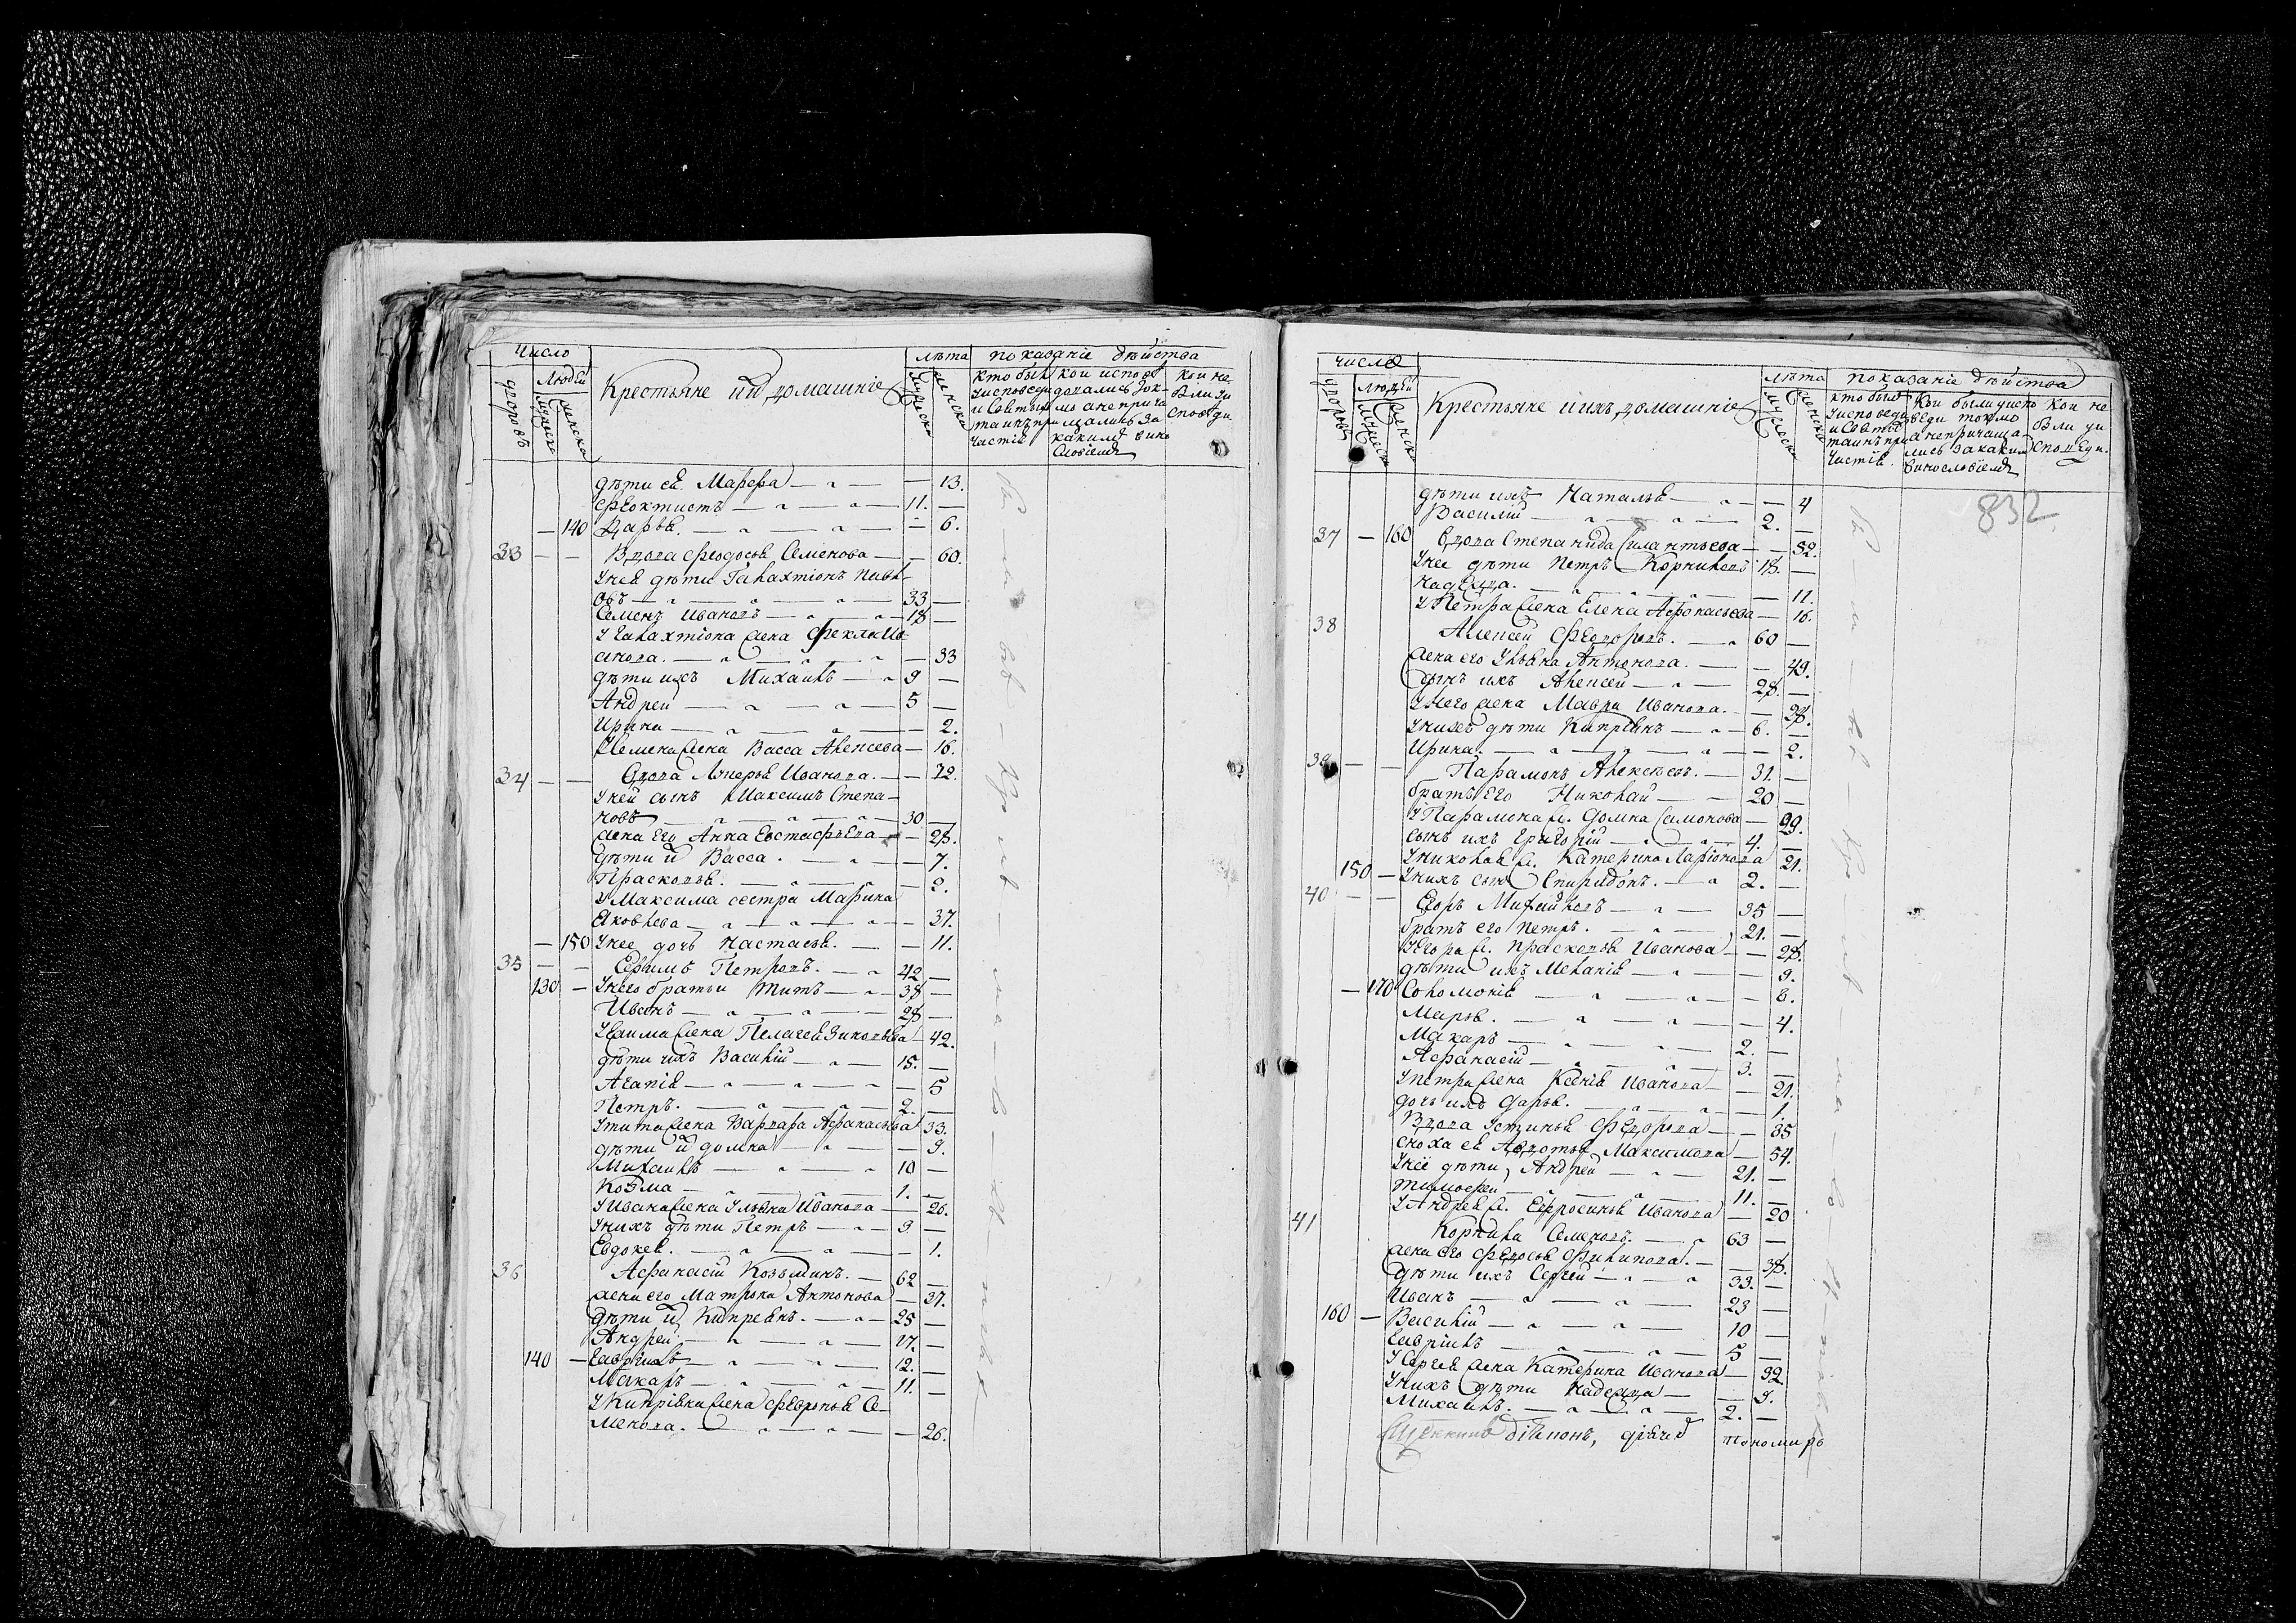 число
лѣта показаніе дѣйства
дворовъ
Людей
мужеска
женска
Крестьяне и их домашніе
мужеска
женска
кто были у исповеди и святых таинъ причастія
кои исповѣдовались токмо а не причащались за каким винословіемъ
кои не были у исповѣди
дѣти еѣ Марѳа — 13.
Ѳеоктистъ — 11. —
— 140 Дарья. — 6.
33 — — Вдова Ѳеодосья Семенова — 60.
У неѣ дѣти Галахтіонъ Ивановъ — 33 —
Семенъ Ивановъ — 18 —
У Галахтіона жена Фекла Иванова. — 33
дѣти ихъ Михаилъ — 9 —
Андреи — 5 —
Ирина — 2.
У Семена жена Васса Алексеева — 16.
34 — — Вдова Лукерья Иванова. — 72.
У ней сынъ Максимъ Степановъ — 30 —
жена его Анна Евстафьева — 28.
дѣти их Васса. — 7.
Прасковья. — 2.
У Максима сестра Марина
Яковлева — 37.
— 150 У нее дочь Настасья. — 11.
35 — — Ефимъ Петровъ. — 42 —
130 — У него братьи Титъ — 38 —
Иванъ — 28 —
У Ефима жена Пелагея Зиновьева — 42.
дѣти ихъ Василій — 15. —
Агапія — 5
Петръ. — 2. —
У Тита жена Варвара Афанасьева 33.
дѣти их Домна — 9.
Михаилъ — 10 —
Козма — 1. —
У Ивана жена Ульяна Иванова — 26.
У нихъ дѣти Петръ — 3 —
Евдокея. — 1.
36 Афанасій Козьминъ. — 62 —
жена его Матрона Антонова — 37.
дѣти их Кипреянъ. — 25 —
Андреи — 17. —
140 — Гаврилъ — 12. —
Макаръ — 11. —
У Кипріяна жена Февронья Семенова. — 26.
число
лѣта показаніе дѣйства
дворовъ
Людей
мужеска
женска
Крестьяне и ихъ домашніе
мужеска
женска
кто были у исповеди и святых таинъ причастія.
Кои были у исповеди токмо а не причащались за каким винословіемъ
Кои не были у исповеди.
832
дѣти ихъ Наталья — 4
Василій — 2. —
37 — 160 Вдова Степанида Силантьева — 52.
У нее дѣти Петръ Корниловъ 18. —
Надежда. — 11.
У Петра жена Елена Афонасьева — 16.
38 Алексеи Ѳедоровъ. — 60 —
жена его Ульяна Антонова. — 49.
сынъ ихъ Алексеи — 28. —
У него жена Мавра Иванова. — 28.
У нихъ дѣти Кипріянъ — 6. —
Ирина. — 2.
39 — — Парамонъ Алексѣевъ. — 31. —
братъ его Николаи — 20 —
У Парамона ж. Домна Самонова — 29.
сынъ ихъ Григорій — 4. —
У Николая ж. Катерина Ларіонова 21.
150 — У нихъ сынъ Спиридонъ. — 2. —
40 — — Егоръ Михаиловъ — 35 —
братъ его Петръ. — 21. —
У Егора ж. Прасковья Иванова — 28.
дѣти ихъ Меланія — 9.
— 170 Соломонія — 6.
Марья. — 4.
Макаръ — 2. —
Афанасій — 3. —
У Петра жена Ксенія Иванова — 21.
дочь ихъ Дарья. — 1.
Вдова Устинья Ѳедорова — 35
сноха еѣ Авдотья Максимова — 54.
У неѣ дѣти Андреи — 21. —
Тимофеи — 11. —
У Андрея ж. Ефросинья Иванова — 20
41 Корнила Семеновъ. — 63 —
жена его Ѳедосья Филипова. — 38.
дѣти ихъ Сергеи — 33. —
Иванъ — 23 —
160 — Василій — 10 —
Гаврилъ — 5 —
У Сергея жена Катерина Иванова — 32
У нихъ дѣти Надежда — 9.
Михаилъ. — 2. —